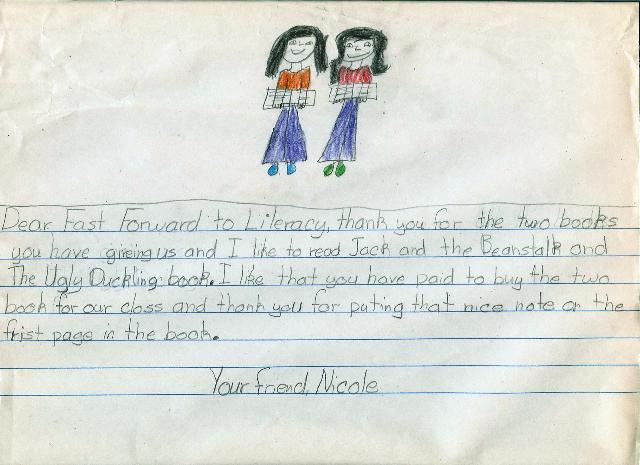 Dear Fast Forward to Literacy, thank you for the two books
you have gireing us and I like to read Jack and the Beanstalk and
The Ugly Duckling book. I like that you have paid to buy the two
book for our class and thank you for puting that nice note on the
frist page in the book.
Your friend, Nicole